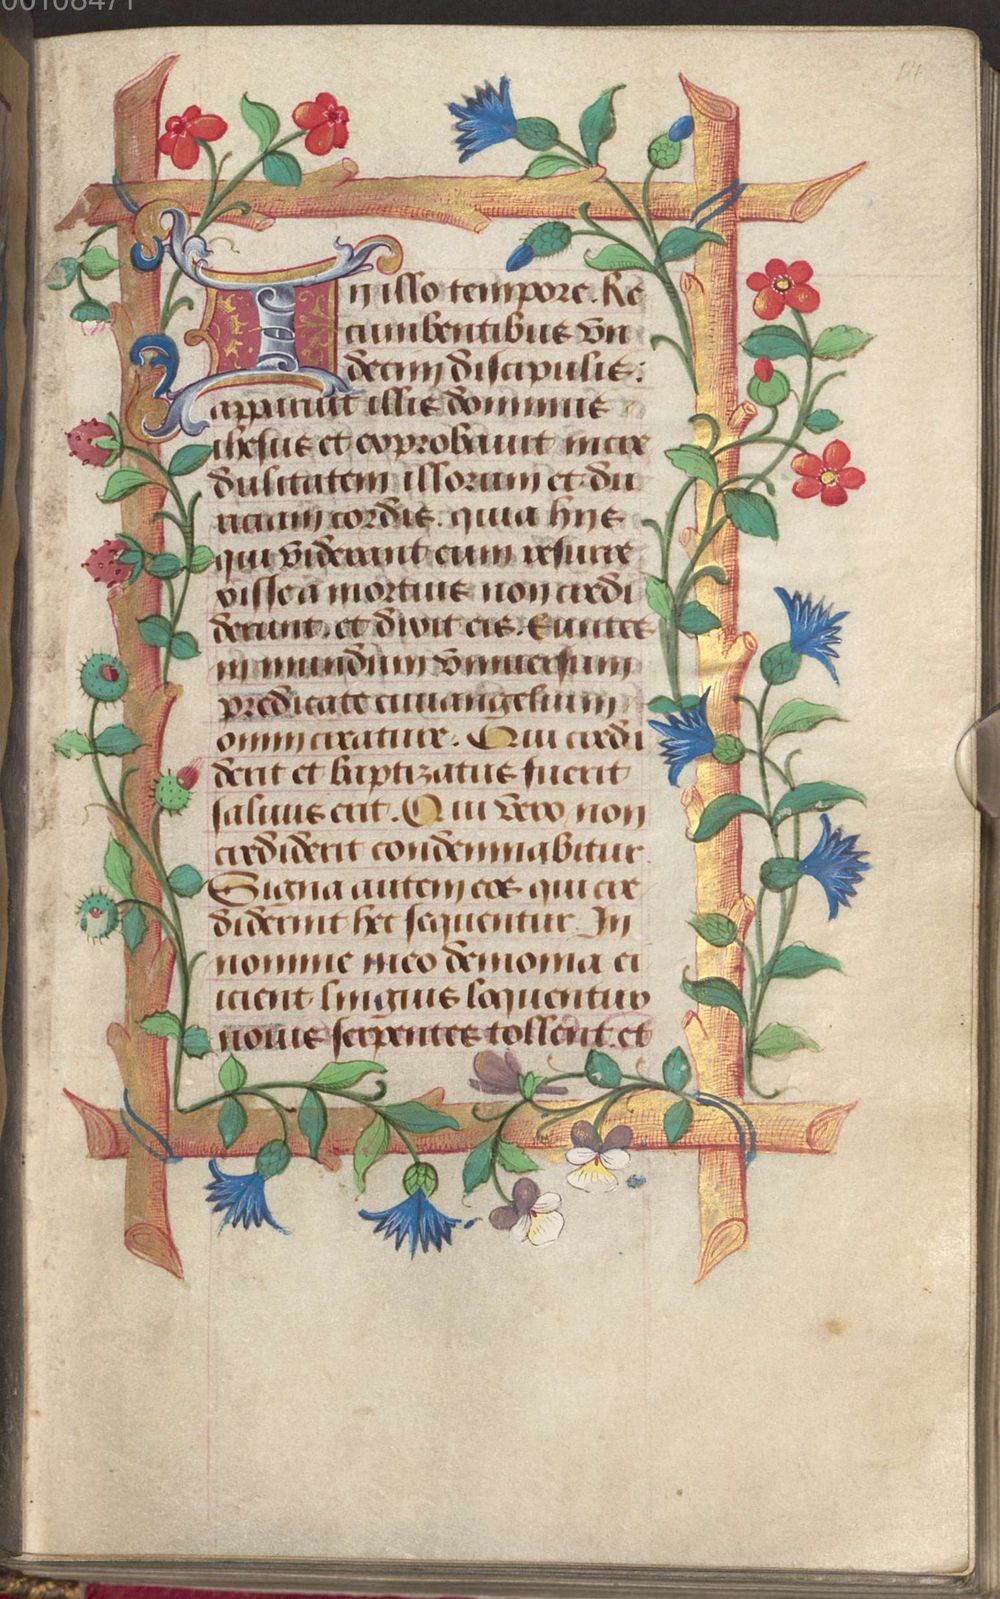 00108471
14
In illo tempore. Re
cumbentibus vn
decim discipulis:
apparuit illis dominus
ihesus et exprobauit incre
dulitatem illorum et du
riciam cordis. quia hijs
qui viderant eum resurre
xisse a mortuis non credi
derunt. et dixit eis. Euntes
in mundum vniuersum
predicate euuangelium
omni creature. Qui credi
derit et baptizatus fuerit
saluus erit. Qui vero non
crediderit condemnabitur.
Signa autem eos qui cre
diderint hec sequentur. In
nomine meo demonia ei
icient linguis loquentur
nouis serpentes tollent et